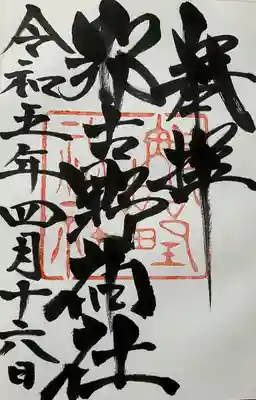 奉拝
那古野神社
令和五年四月十六日